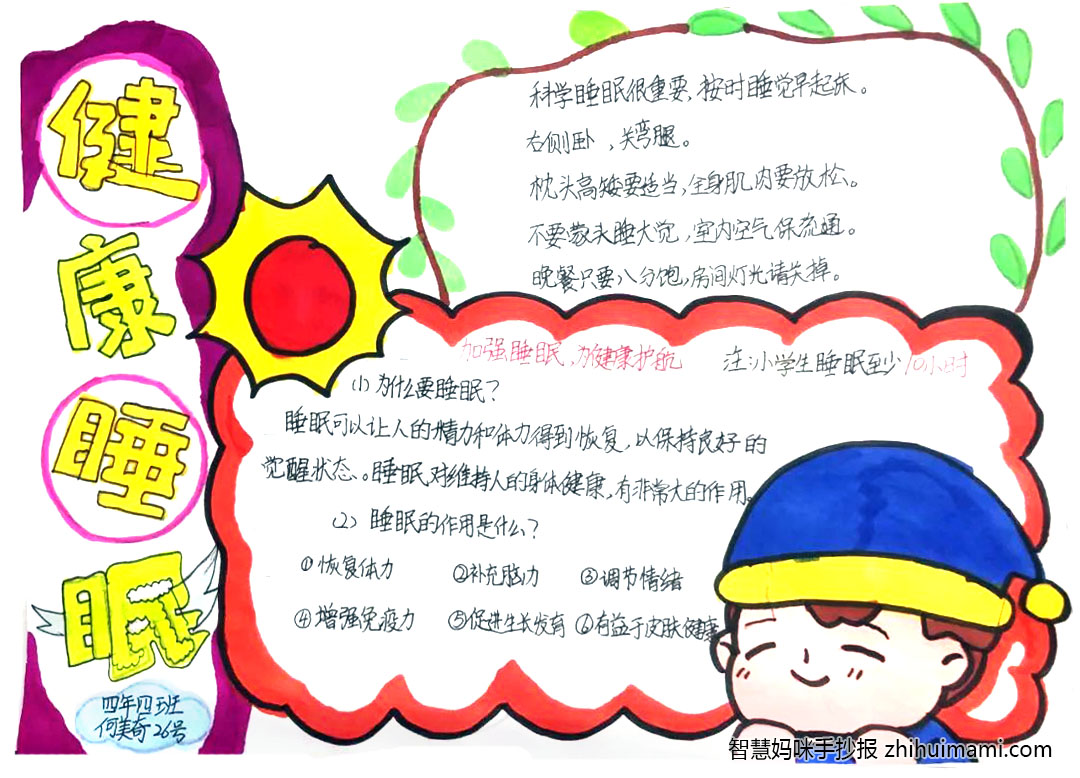 健
康
睡
眠
四年四班
何美奇26号
科学睡眠很重要,按时睡觉早起床。
右侧卧,关弯腿。
枕头高矮要适当,全身肌肉要放松。
不要蒙头睡大觉,室内空气保流通。
晚餐只要八分饱,房间灯光请关掉。
加强睡眠、为健康护航 注:小学生睡眠至少10小时
(1)为什么要睡眠?
睡眠可以让人的精力和体力得到恢复,以保持良好的
觉醒状态。睡眠对维持人的身体健康,有非常大的作用。
(2)睡眠的作用是什么?
①恢复体力 ②补充脑力 ③调节情绪
④增强免疫力 ⑤促进生长发育 ⑥有益于皮肤健康
智慧妈咪手抄报 zhihuimami.com